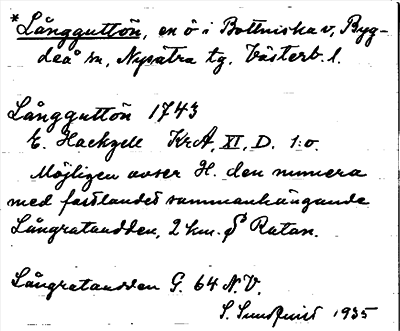 *Långguttön, en ö i Bottniska v, Byg-
deå sn, Nysätra tg. Västerb. l.
Långguttön 1743
E. Hackzell KrA, XI, D. 1:o.
Möjligen avser H. den numera
med fastlandet sammanhängande
Långrataudden, 2 km. Ratan.
Långrataudden G. 64 N.V.
S. Sundqvist 1935